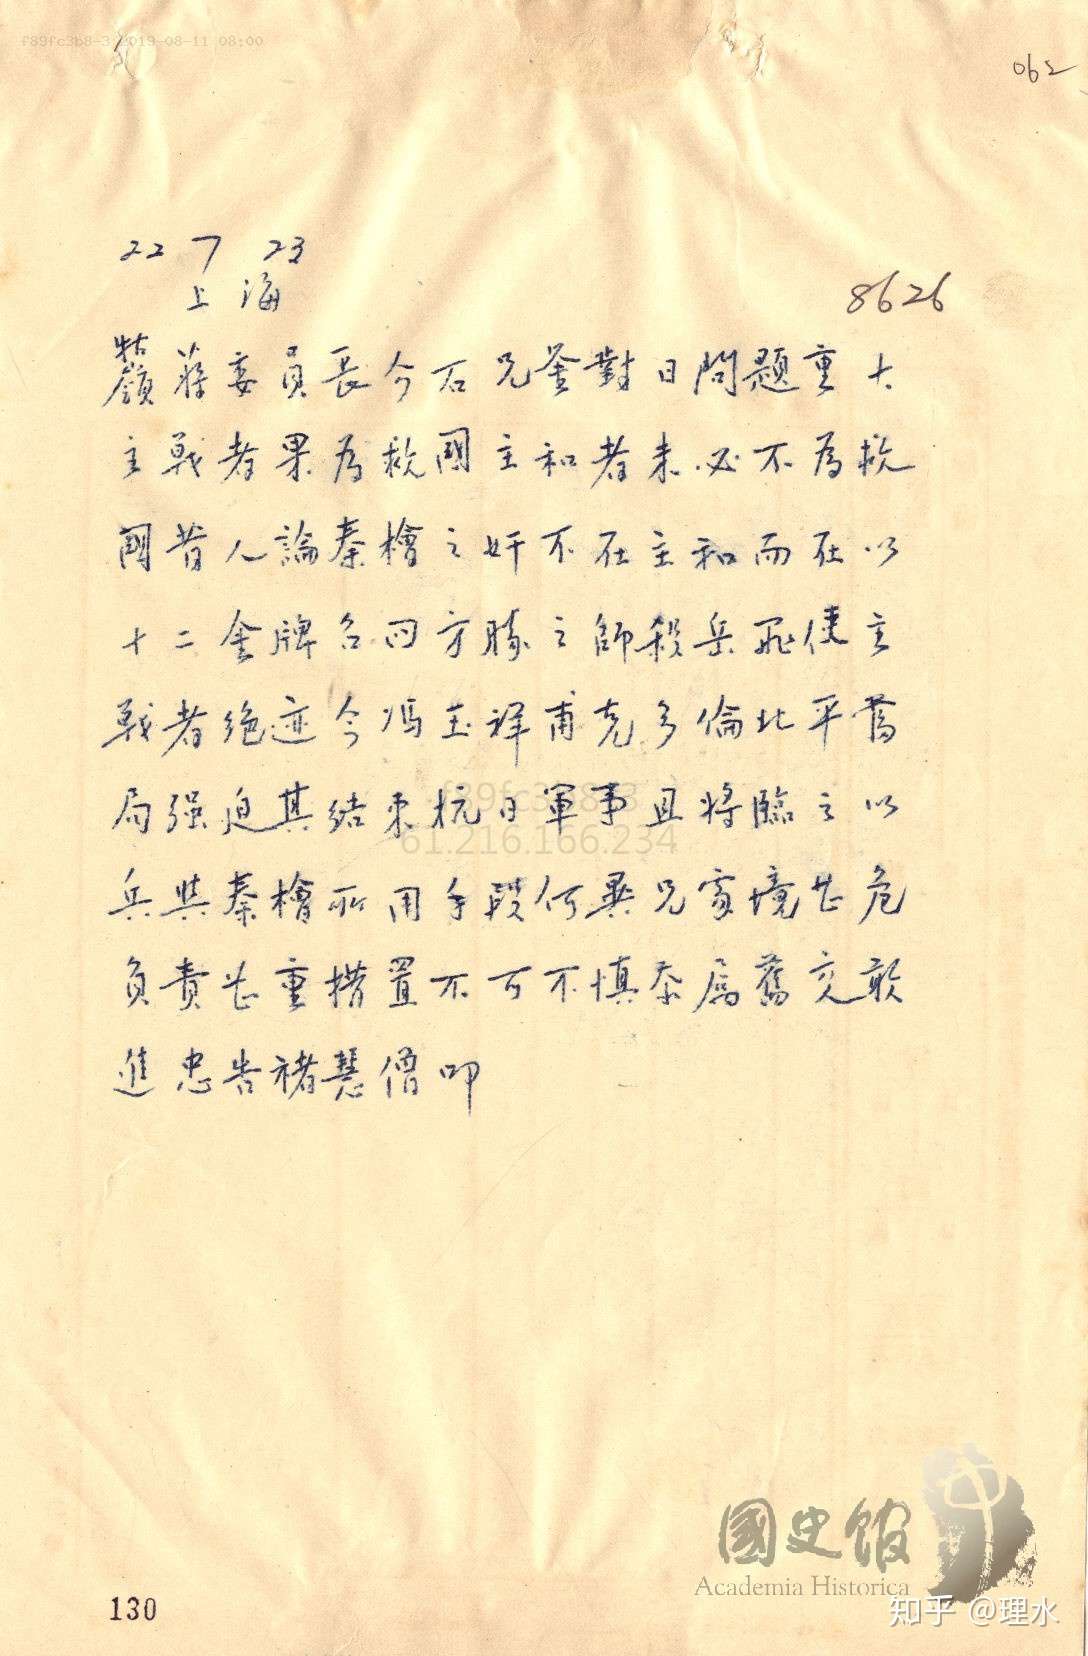 f89fc3b8-3 2019-08-11 08:00
062
22 7 23
上海
8626
牯嶺蔣委員長介石兄鉴對日問題重大
主戰者果為救國主和者未必不為救
國昔人論秦檜之奸不在主和而在以
十二金牌召四方勝之師殺岳飛使主
戰者绝迹今馮玉祥甫克多倫北平當
局强迫其结束抗日軍事且將臨之以
兵與秦檜所用手段何異兄家境甚危
負責甚重措置不可不慎忝屬舊交敢
進忠告褚慧僧叩
f89fc3b8-3
61.216.166.234
國史館
Academia Historica
知乎 @理水
130